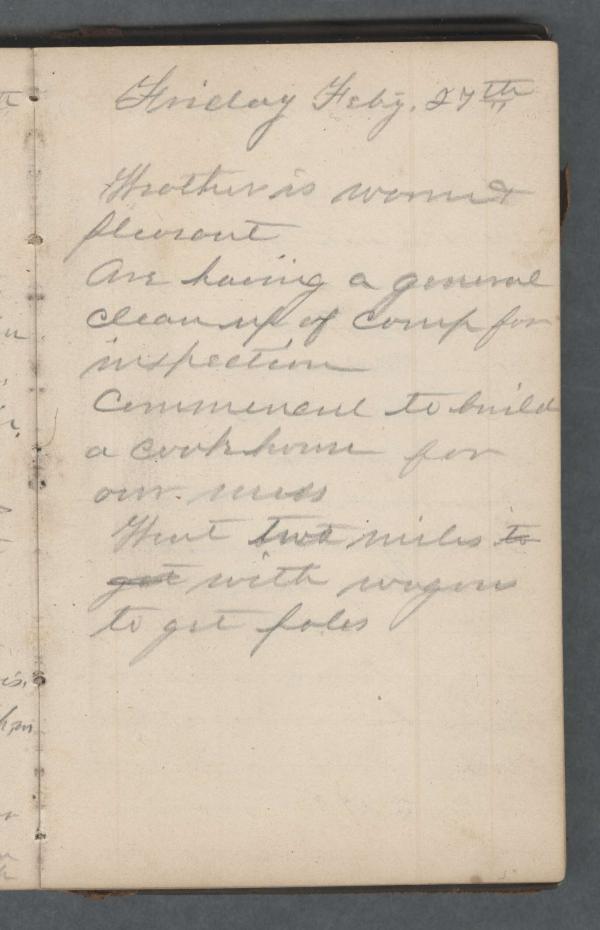 Friday Feby. 27th
Weather is warm &
pleasant
Are having a general
clean up of camp for
inspection
Commenced to build
a cook house for
our mess
Went two miles to
get with wagons
to get poles